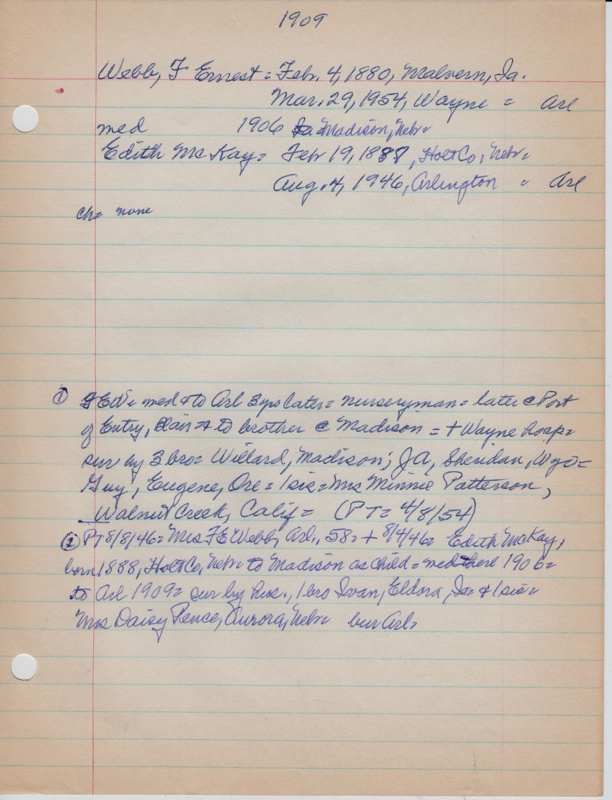 1909
Webb, F Ernest = Feb. 4, 1880, Malvern, Ia.
Mar. 29, 1954, Wayne = Arl
med 1906 Madison, Nebr=
Edith McKay = Feb 19, 1888, Holt Co, Nebr=
Aug. 4, 1946, Arlington = Arl
ch= none
① FEW= med + to Arl 3 yrs later = nurseryman = later @ Port
of Entry, Blair → to brother @ Madison = + Wayne hosp=
sur by 3 bro= Willard, Madison; JA, Sheridan, Wyo=
Guy, Eugene, Ore = 1 sis = Mrs Minnie Patterson,
Walnut Creek, Calif = (PT = 4/8/54)
① PT 8/8/46 = Mrs FE Webb, Arl, 58 = + 8/4/46 = Edith McKay,
born 1888, Holt Co, Nebr= to Madison as child = med there 1906=
to Arl 1909 = sur by hus., 1 bro Ivan, Eldora, Ia= + 1 sis=
Mrs Daisy Pence, Aurora, Nebr= bur Arl=